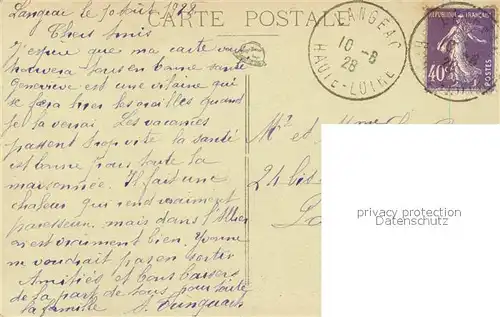 Langeac le 10 Août 1928
CARTE POSTALE
Chers amis
J'espère que ma carte vous
trouvera tous en bonne santé
Geneviève est une vilaine qui
se fera tirer les oreilles quand
je la verrai. Les vacances
passent trop vite la santé
est bonne pour toute la
maisonnée. Il fait une
chaleur qui rend vraiment
paresseux. mais dans l'Allier
on est vraiment bien. Yvonne
ne voudrait pas en sortir
Amitiés et bons baisers
de la part de tous pour toute
la famille
LANGEAC
10 -8
28
HAUTE-LOIRE
REPUBLIQUE FRANÇAISE
40
Mr et Mme
24 bis
privacy protection
Datenschutz